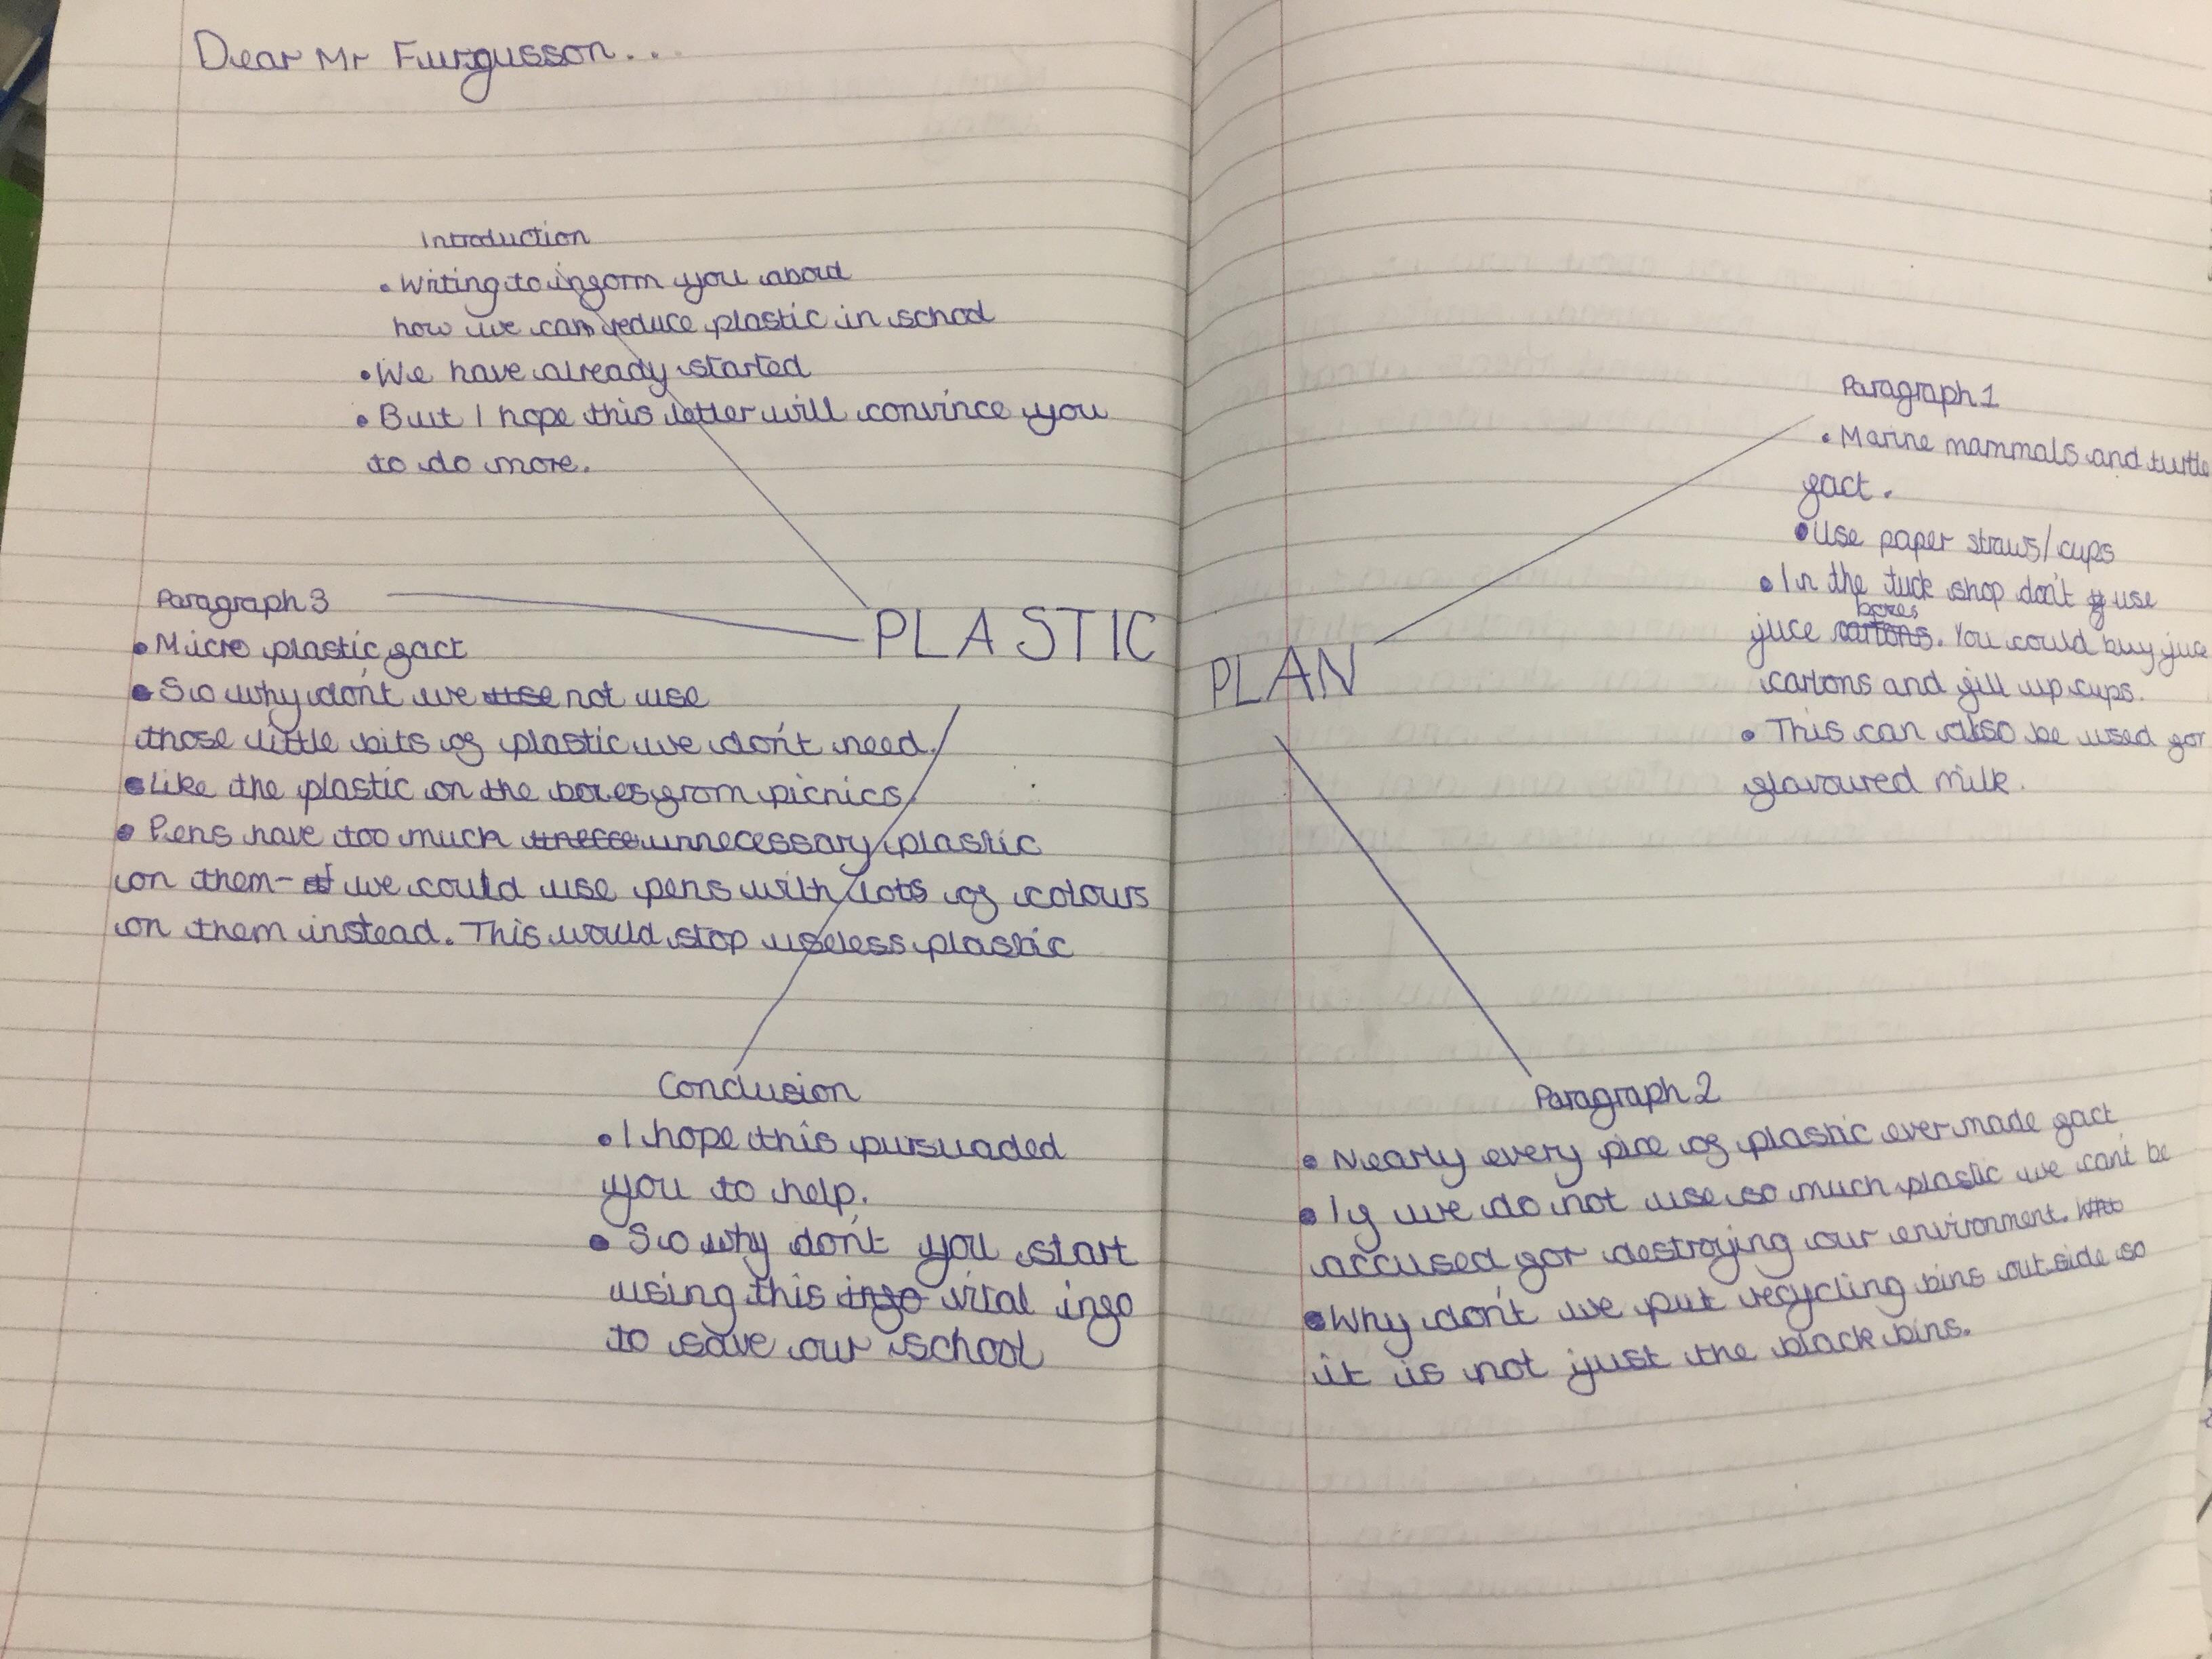 Dear Mr Furgusson...
Introduction
• Writing to inform you about
how we can reduce plastic in school
• We have already started
• But I hope this letter will convince you
to do more.
PLASTIC
PLAN
Paragraph 1
• Marine mammals and turtle
fact.
• Use paper straws/cups
• In the tuck shop don't use
boxes
juce cartons. You could buy juce
cartons and fill up cups.
• This can also be used for
flavoured milk.
Paragraph 2
• Nearly every pice of plastic ever made fact
• If we do not use so much plastic we can't be
accused for destroying our environment.
• Why don't we put recycling bins outside so
it is not just the black bins.
Paragraph 3
• Micro plastic fact
• So why don't we use not use
those little bits of plastic we don't need.
• Like the plastic on the boxes from picnics.
• Pens have too much unnecce unnecessary plastic
on them- we could use pens with lots of colours
on them instead. This would stop useless plastic
Conclusion
• I hope this pursuaded
you to help.
• So why don't you start
using this info vital info
to save our school